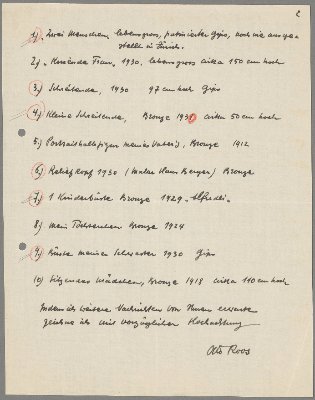 2
1.) Zwei Menschen, lebensgross, patinierter Gips, noch nie ausge-
stellt in Zürich.
2.) "Kniende Frau", 1930, lebensgross circa 150 cm hoch
3.) Schreitende, 1930 97 cm hoch Gips
4.) Kleine Schreitende, Bronze 1931 circa 50 cm hoch
5.) Porträthalbfigur meines Vaters, Bronze 1912
6.) Reliefkopf 1930 (Maler Hans Berger) Bronze
7.) 1 Kinderbüste Bronze 1929 "Alfredli"
8.) mein Töchterchen Bronze 1924
9.) Büste meiner Schwester 1930 Gips
10.) Sitzendes Mädchen, Bronze 1918 circa 110 cm hoch
Indem ich weitere Nachrichten von Ihnen erwarte
zeichne ich mit vorzüglicher Hochachtung
Otto Roos